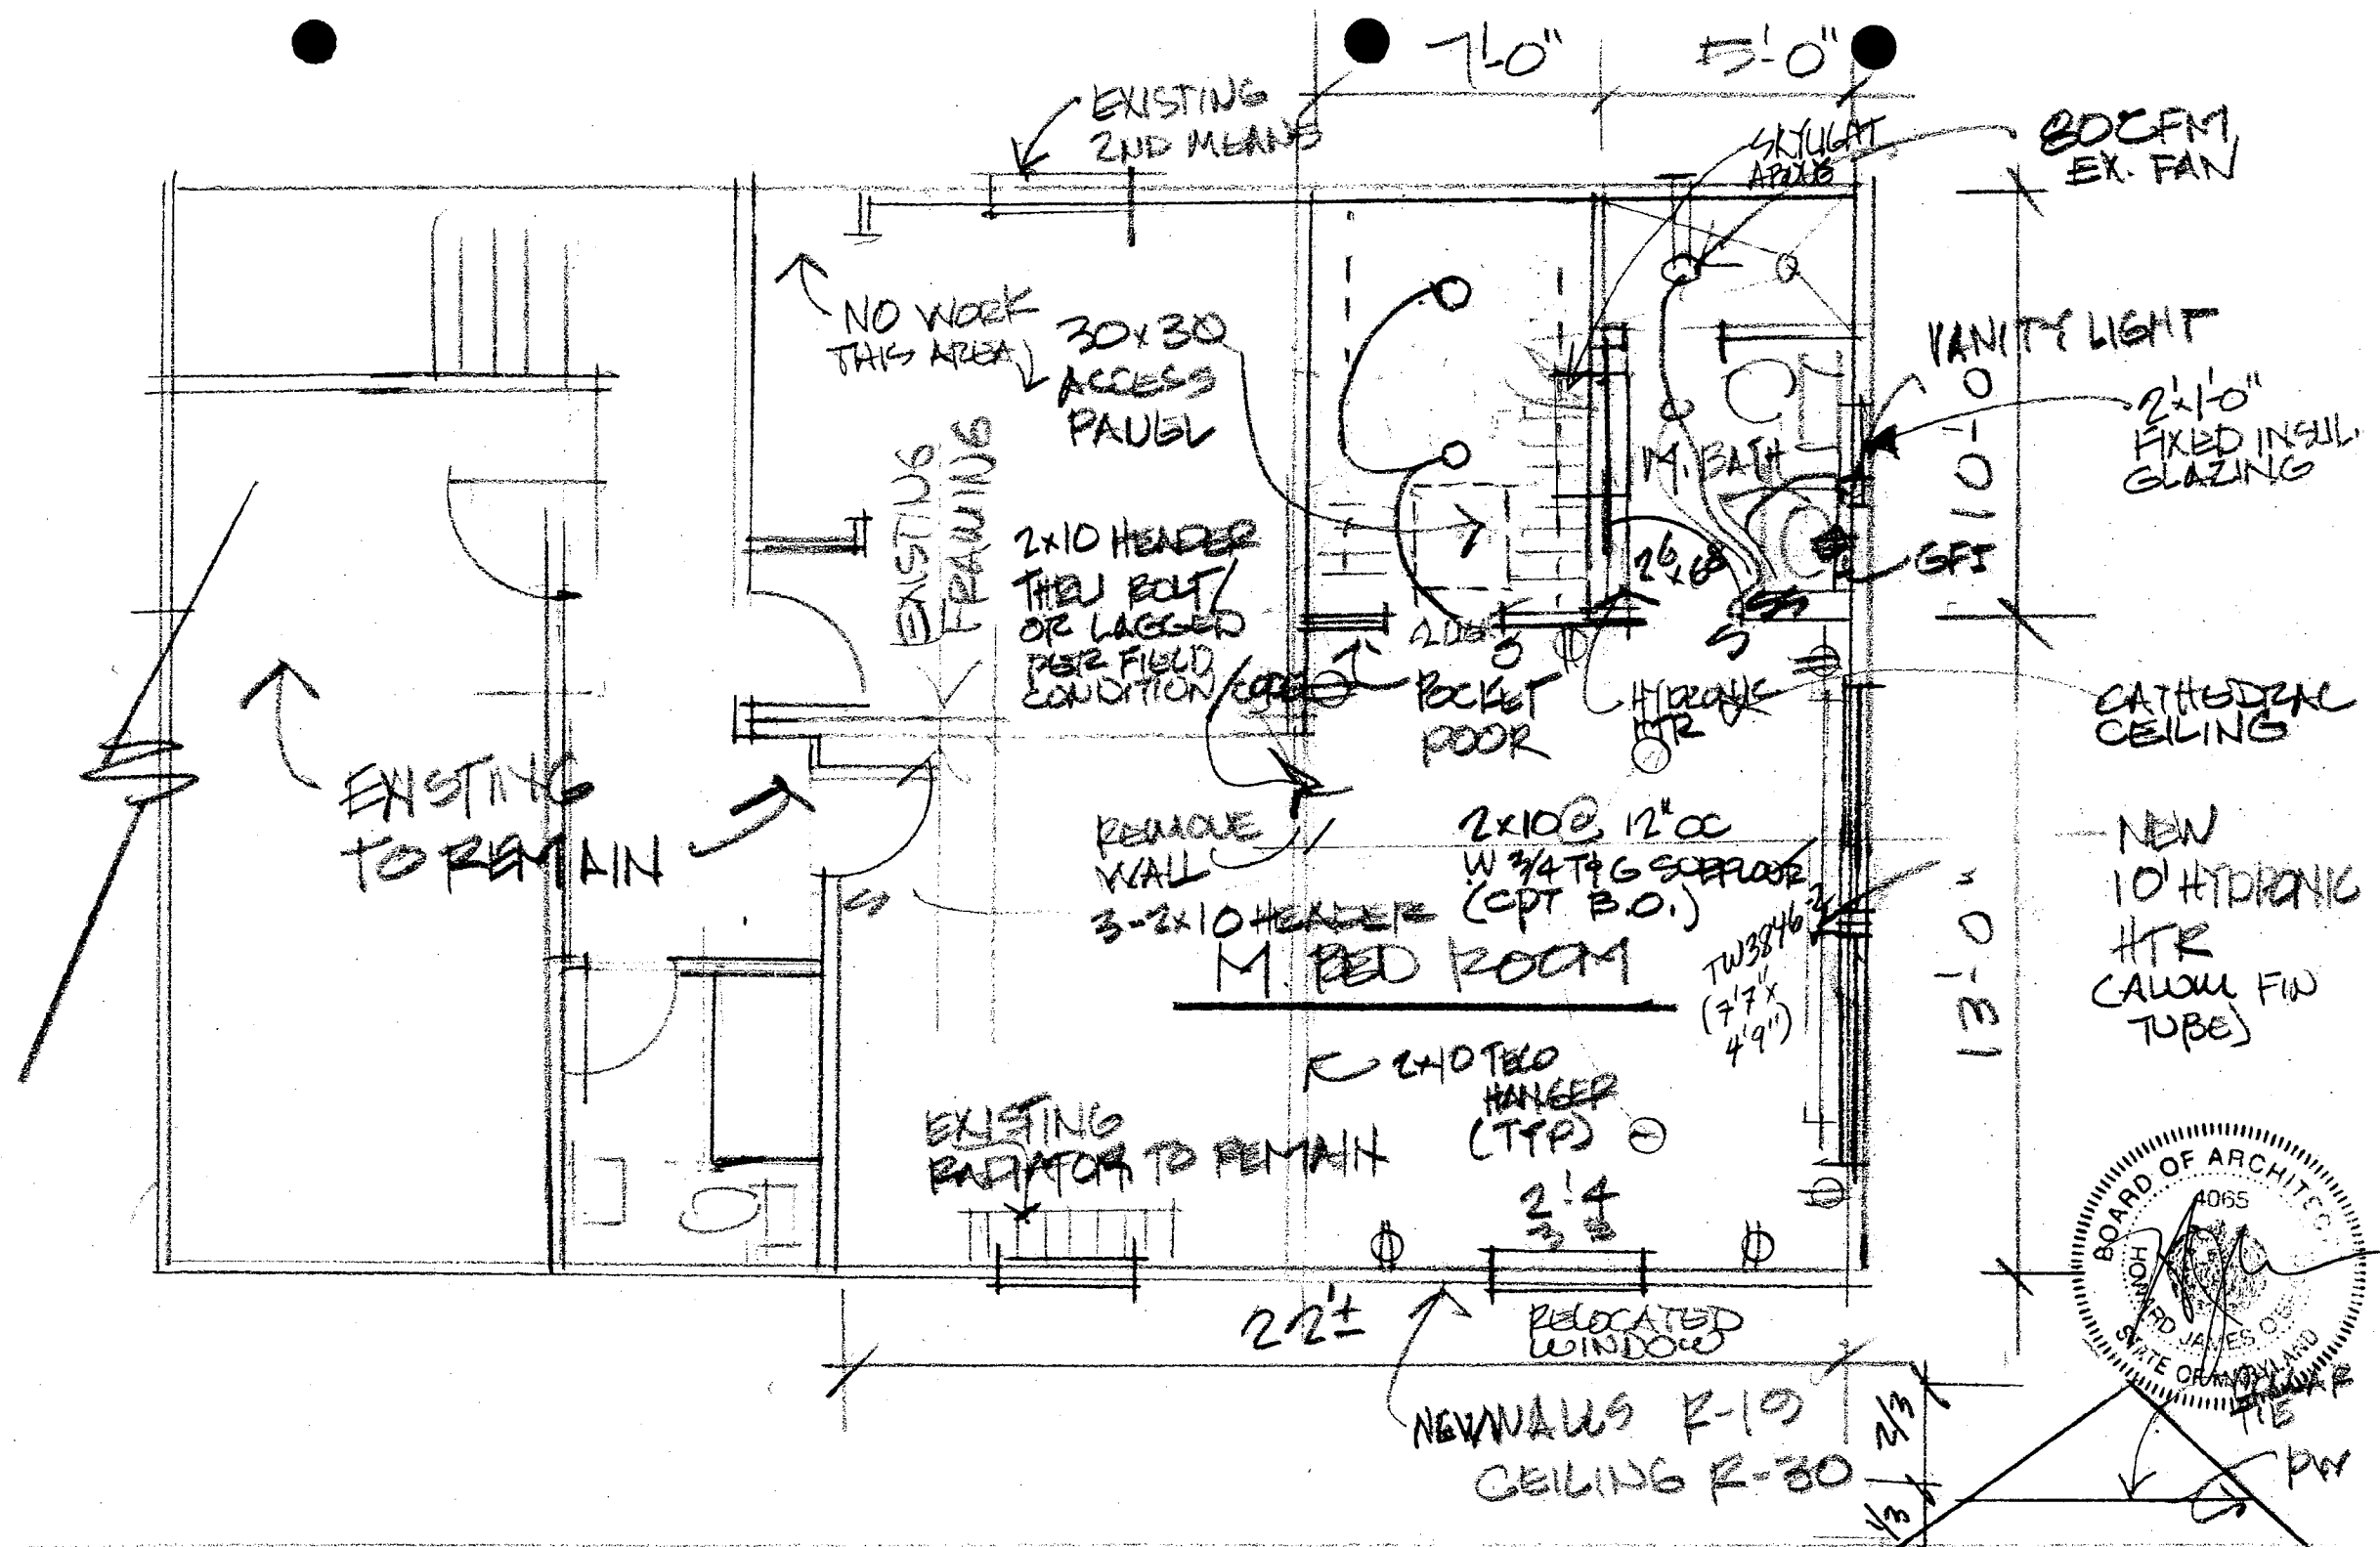 7'-0"
5'-0"
EXISTING
2ND MEANS
SKYLIGHT
ABOVE
80 CFM
EX. FAN
NO WORK
THIS AREA
30x30
ACCESS
PANEL
VANITY LIGHT
2'x1'-0"
FIXED INSUL.
GLAZING
10'-0"
M. BATH
EXISTING
FRAMING
2x10 HEADER
THRU BOLT/
OR LAGGED
PER FIELD
CONDITION/CODE
26x68
GFI
S
S
S
S
POCKET
DOOR
HYDRONIC
HTR
CATHEDRAL
CEILING
EXISTING
TO REMAIN
REMOVE
WALL
2x10@ 12" OC
W 3/4 T&G SUBFLOOR
(CPT B.O.)
3-2x10 HEADER
S
M. BED ROOM
TW3846-2
(7'7"x
4'9")
13'-0"
NEW
10' HYDRONIC
HTR
(ALUM FIN
TUBE)
2x10 TECO
HANGER
(TYP)
EXISTING
RADIATOR TO REMAIN
22'±
RELOCATED
WINDOW
NEW WALLS R-19
CEILING R-30
2/3
1/3
BOARD OF ARCHITEC
4065
HOWARD JAMES
STATE OF MARYLAND
TIE